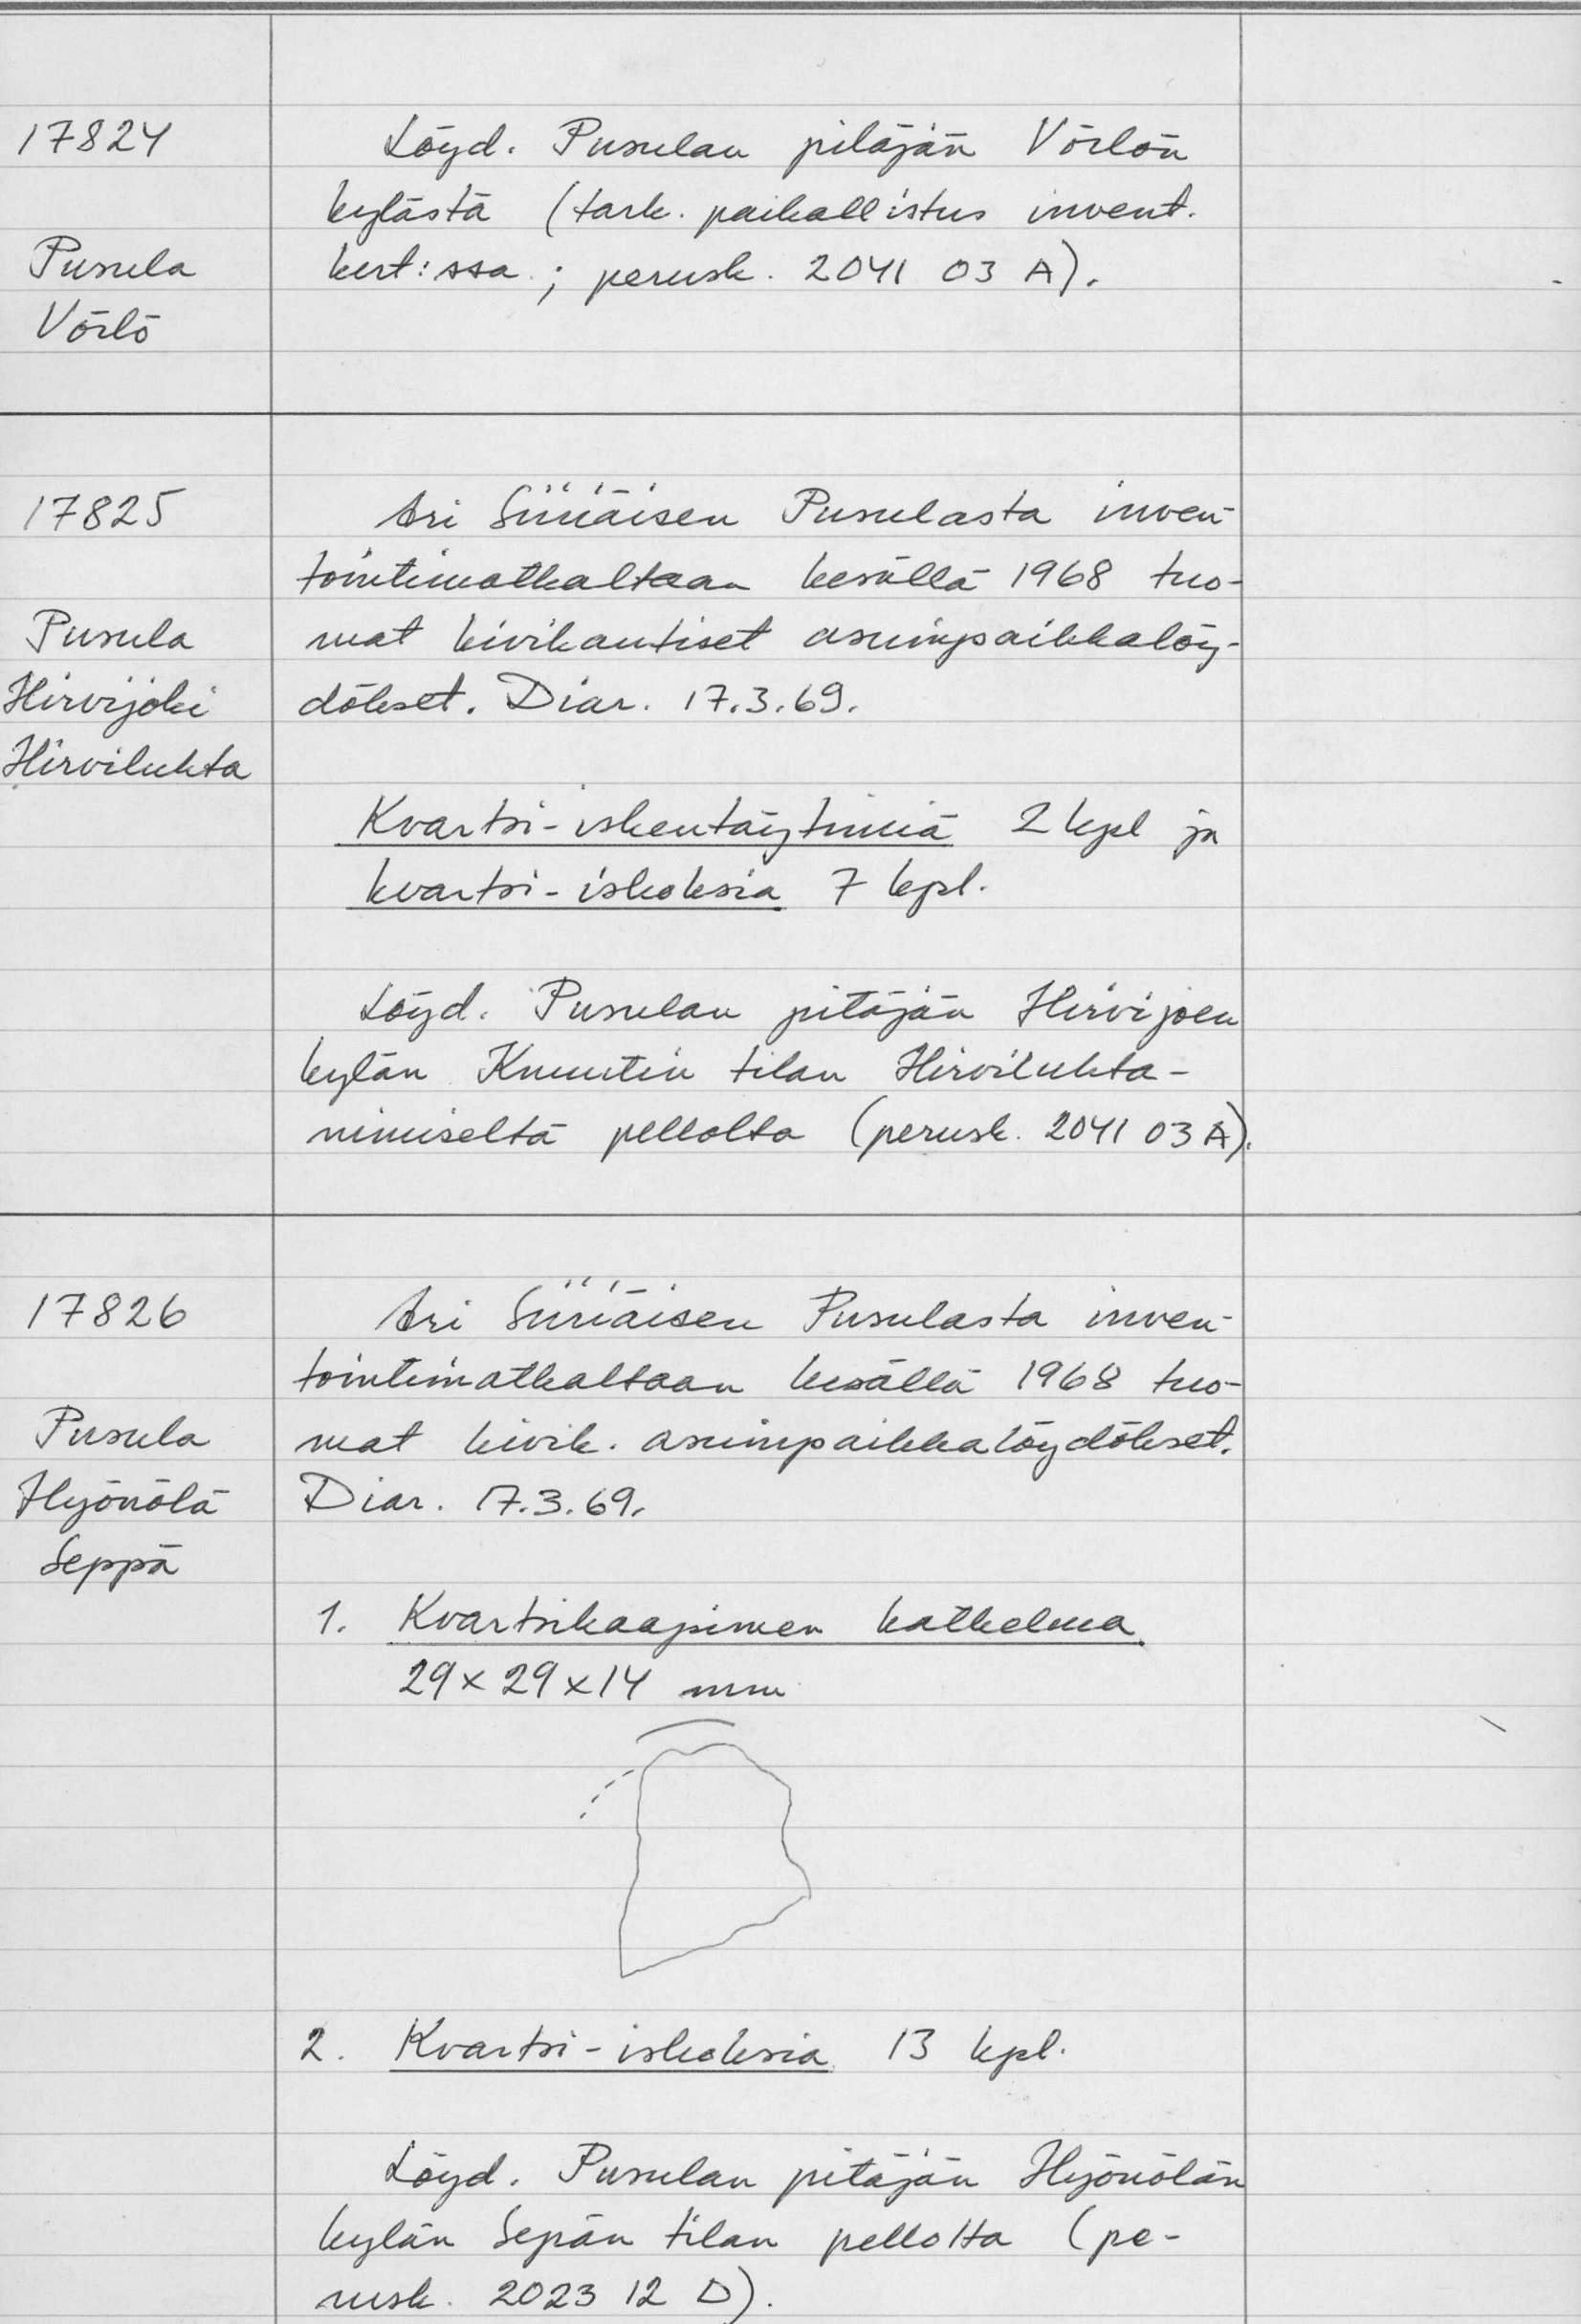 17824
Pusula
Vörlö
Löyd. Pusulan pitäjän Vörlön
kylästä (tark. paikallistus invent.
kert:ssa ; perusk. 2041 03 A).
17825
Pusula
Hirvijoki
Hirviluhta
Ari Siiriäisen Pusulasta inven-
tointimatkaltaan kesällä 1968 tuo-
mat kivikautiset asuinpaikkalöy-
dökset. Diar. 17.3.69.
Kvartsi-iskentäytimiä 2 kpl ja
kvartsi-iskoksia 7 kpl.
Löyd. Pusulan pitäjän Hirvijoen
kylän Knuutin tilan Hirviluhta-
nimiseltä pellolta (perusk. 2041 03 A).
17826
Pusula
Hyönölä
Seppä
Ari Siiriäisen Pusulasta inven-
tointimatkaltaan kesällä 1968 tuo-
mat kivik. asuinpaikkalöydökset.
Diar. 17.3.69.
1. Kvartsikaapimen katkelma
29 x 29 x 14 mm
2. Kvartsi-iskoksia 13 kpl.
Löyd. Pusulan pitäjän Hyönölän
kylän Sepän tilan pellolta (pe-
rusk. 2023 12 D).